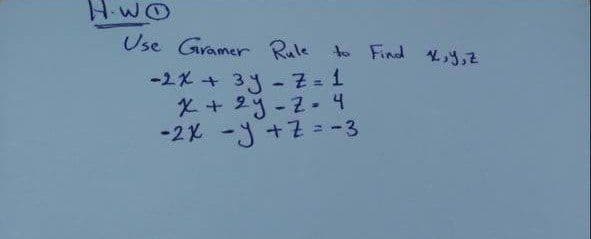 H.W ①
Use Gramer Rule to Find x,y,z
-2x + 3y - z = 1
x + 2y - z = 4
-2x - y + z = -3